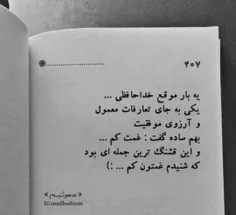 ۴۰۷
یه بار موقع خداحافظی ...
یکی به جای تعارفات معمول
و آرزوی موفقیت
بهم ساده گفت : غمت کم ...
و این قشنگ ترین جمله ای بود
که شنیدم غمتون کم ... :)
«مدهوشیم»